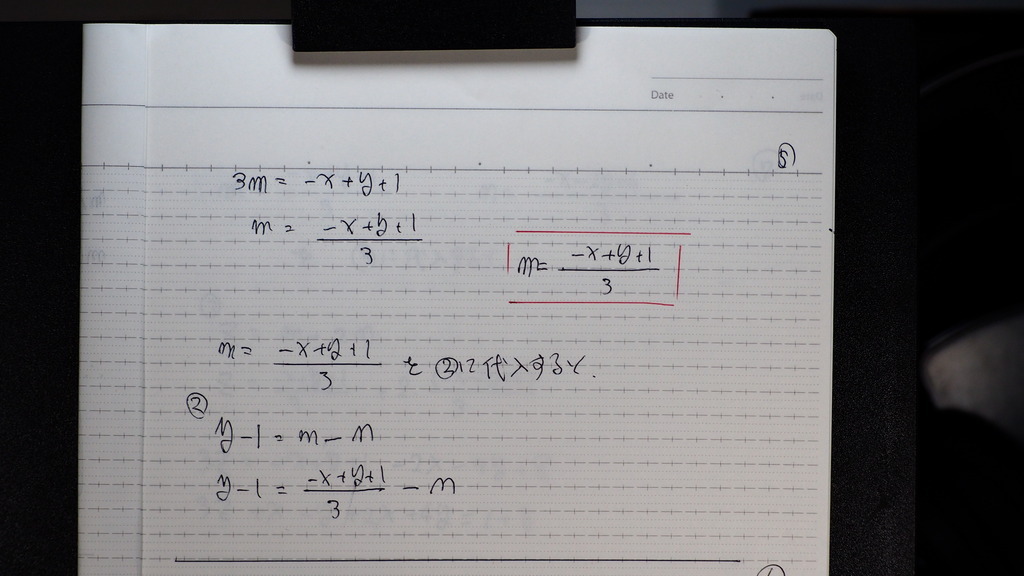 Date
⑤
3m = -x+y+1
m = \frac{-x+y+1}{3}
m = \frac{-x+y+1}{3}
m = \frac{-x+y+1}{3} を②に代入すると.
②
y-1 = m-n
y-1 = \frac{-x+y+1}{3} - n